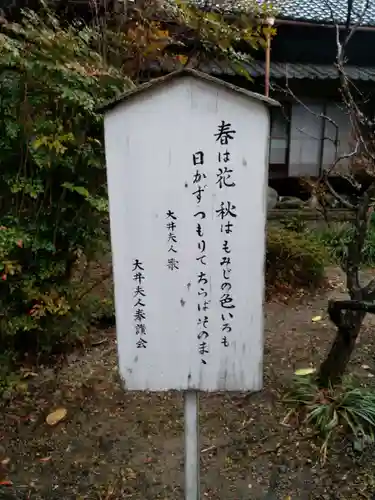 春は花 秋はもみじの色いろも
日かずつもりて ちらばそのまゝ
大井夫人 歌
大井夫人奉讃会